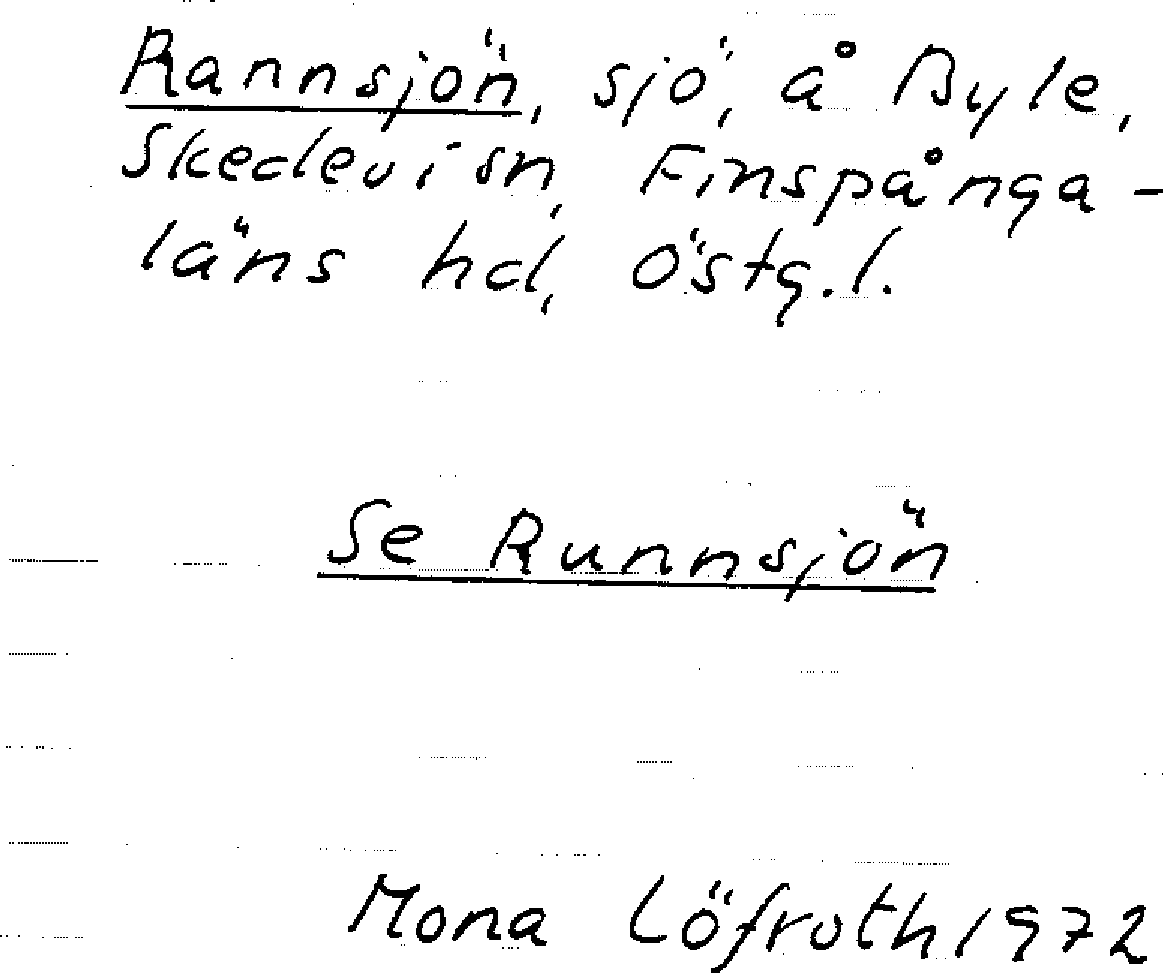 Rannsjön, sjö, å Byle,
Skedevi sn, Finspånga-
läns hd, Östg.l.
Se Runnsjön
Mona Löfroth 1972